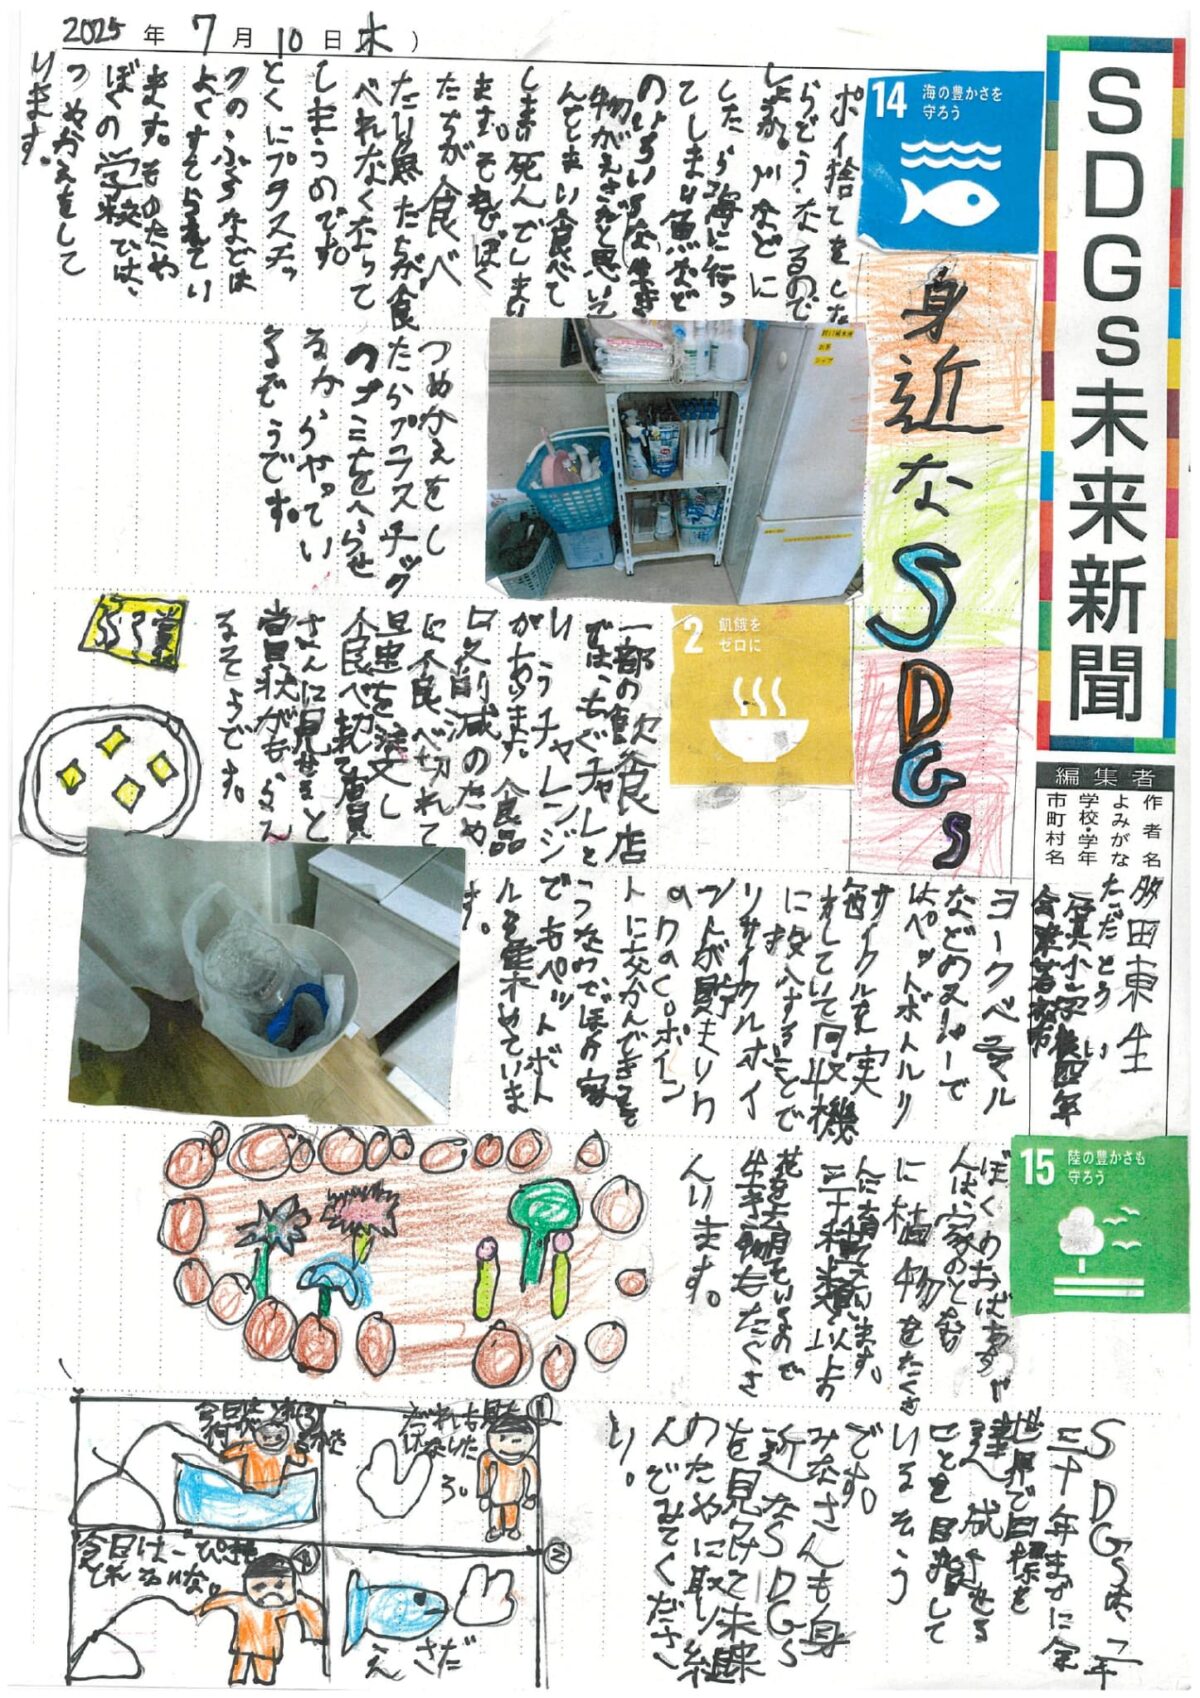 2025年7月10日(木)
SDGs未来新聞
編集者
作者名
よみがな
学校・学年
市町村名
多田東生
ただとうい
身近なSDGs
14 海の豊かさを
守ろう
ポイ捨てをした
らどうなるので
しょうか。川などに
したら海に行っ
てしまり魚など
のいろいろな生き
物がえさだと思いて
んでしまい食べて
しまい死んでしまい
ます。それでぼく
たちが食べ
たり魚たちが食
べれなくなって
しまうのです。
とくにプラスチッ
クのふくろなどは
よくすてられてい
ます。そのため
ぼくの学校では、
つめかえをして
います。
つめかえをし
たらプラスチック
のゴミをへらせ
るからやってい
るそうです。
2 飢餓を
ゼロに
一部の飲食店
では、もぐチャレと
いうチャレンジ
があります。食品
ロス削減のため
に食べ切れて
旦里を注文し
食べ切って店員
さんに見せると
賞状がもらえ
るそうです。
ヨークベニマル
などのスーパーで
はペットボトルリ
サイクルを実
施していて回収機
に投入することで
リサイクルポイ
ントが貯まりn
anacoポイン
トに交かんできる
そうなのでぼくの家
でもペットボト
ルを集めていま
す。
15 陸の豊かさも
守ろう
ぼくのおばあちゃ
んは、家のとなり
に植物をたくさ
んに植えています。
三十種類以上の
花を育てているので
生き物もたくさ
んいます。
SDGsは、二千
三十年までに全
世界で目標を
達成させる
ことを目指して
いるそう
です。
みなさんも身
近なSDGs
を見つけて未来
のために取り組
んでみてくださ
い。
①
だれも見た
いないだ
ろ。
②
えさだ
今日は一ぴきも
とれないな。